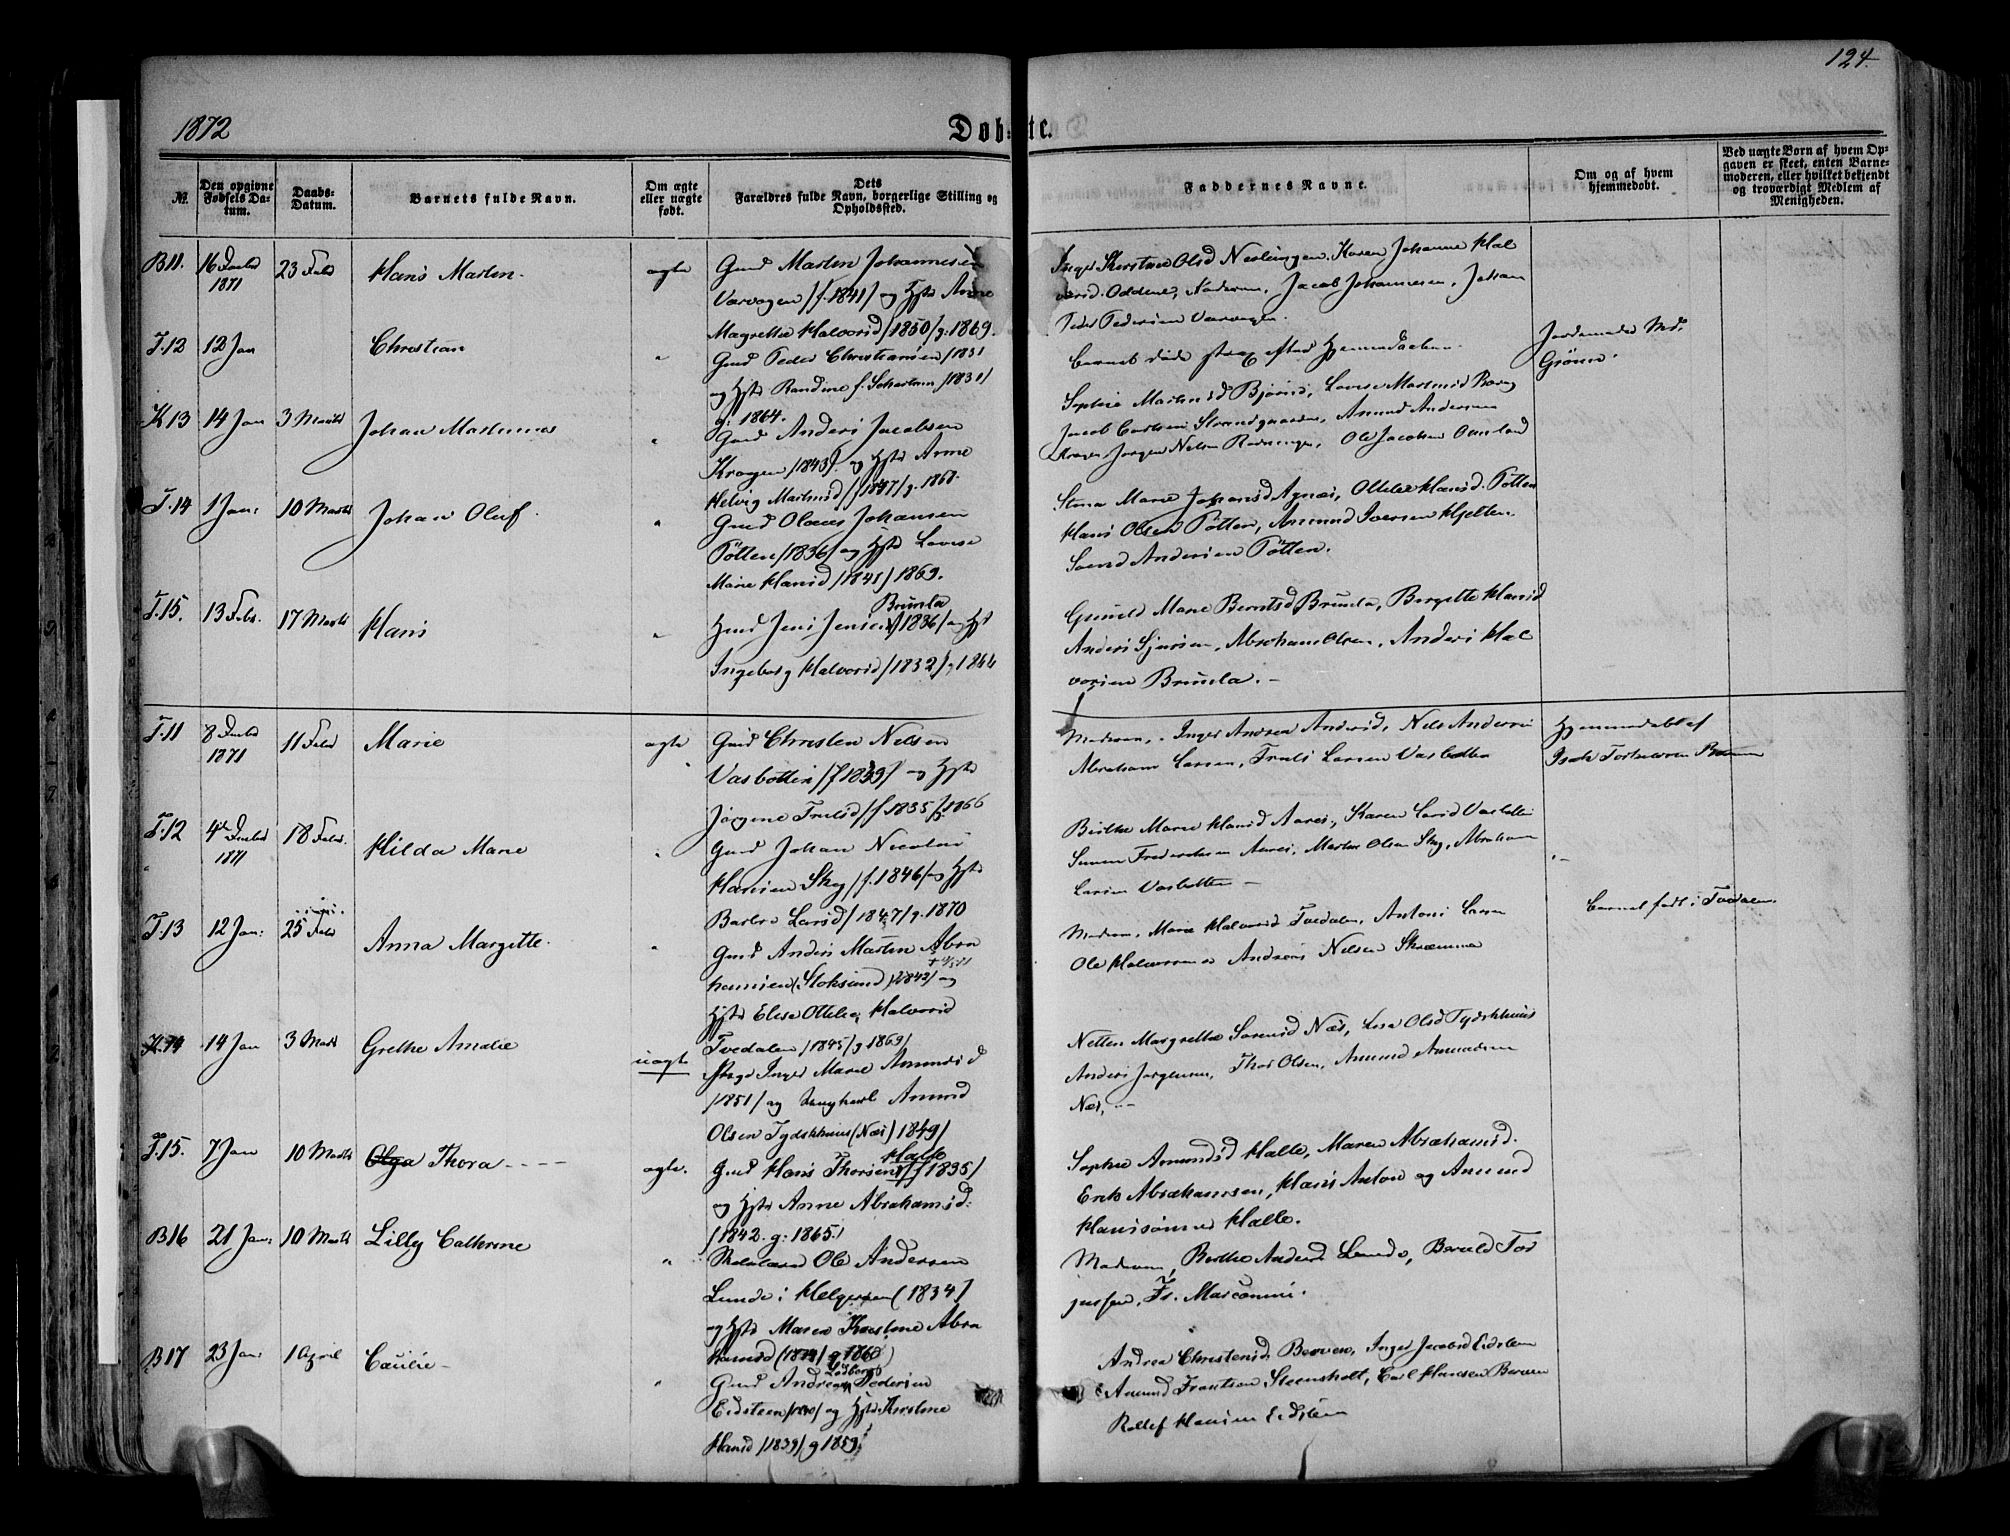 124.
1872
Døb- te.
№.
Den opgivne Fødsels Da-tum.
Daabs-Datum.
Barnets fulde Navn.
Om ægte eller uægte født.
Dets Forældres fulde Navn, borgerlige Stilling og Opholdssted.
Faddernes Navne.
Om og af hvem hjemmedøbt.
Ved uægte Børn af hvem Op-gaven er skeet, enten Barne-moderen, eller hvilket bekjendt og troværdigt Medlem af Menigheden.
B11. 16 Decbr 1871 23 Febr Hans Martin. ægte
Gmd Martin Johannesen
Værvagen /f. 1841/ og Hstr Anne
Magrethe Halvorsd /1850/ g: 1869.
Inger Kirstine Olsd Nevlungen, Karen Johanne Hal
vorsd. Oddene, Jacob Johannesen, Johan
Peder Pedersen Værvagen.
T.12 12 Jan Christian "
Gmd Peder Christiansen /1831
og Hstr Randine f. /1831/
g: 1864.
Barnet døde strax efter Hjemmedaaben.
Jordemoder Md.
Grønn.
K13 14 Jan 3 Marts Johan Martinius "
Gmd Anders Jacobsen
Krogen /1843/. og Hstr Anne
Helvig Martinsd /1847/ g. 1868.
Sophie Martinsd Bjønnes, Lovise Martinsd
Jacob Carlsen Strandgaarden, Amund Andersen
Krogen, Jørgen Nelsen, Ole Jacobsen Omland
T.14 1 Jan: 10 Marts Johan Oluf. "
Gmd Olaves Johansen
Pøtten /1836/ og Hstr Lovise
Marie Hansd /1841/ 1869.
Stina Marie Johansd Agnæs, Otteleie Hansd. Pøtten
Hans Olsen Pøtten, Amund Iversen Hjelten.
Svend Andersen Pøtten.
T.15. 13 Febr. 17 Marts Hans "
Brunla
Gmd Jens Jensen /1836/ og Hstr
Ingeborg Halvorsd /1832/ g. 1864
Gunild Marie Berntsd Brunla, Birgitte Hansd
Anders Sjursen, Abraham Olsen, Anders Hal
vorsen Brunla. -
T.11 8 Decbr 1871 11 Febr Marie ægte
Gmd Christen Nelsen
Vasbotten /f 1839/ og Hstr
Jørgine Trulsd /f. 1835/ g. 1866
Moderen, Inger Andrea Andersd, Nels Andersen
Abraham Larsen, Truls Larsen Vasbotten
Hjemmedøbt af
T.12 4de Decbr 1871 18 Febr. Hilda Marie "
Gmd Johan Nicolai
Hansen Sky /f. 1846/ og Hstr
Barbro Larsd /1847/ g. 1870
Berthe Marie Hansd Aarøe, Karen Larsd Vasbotten
Simen Fredriksen Aarøe, Martin Olsen Sky, Abraham
Larsen Vasbotten -
T.13 12 Jan: 25 Febr Anna Margitte. "
Gmd Anders Martin Abra
hamsen (Stoksund) /1842/ og
Hstr Elise Ottelia Halvorsd
Tvedalen /1845/ g 1869/
Moderen, Marie Halvorsd Tvedalen, Antoni Larsen
Ole Halvorsen Andreas Nelsen
Barnet født i Tvedalen.
K14 14 Jan 3 Marts Grethe Amalie uægte
Pige Inger Marie Amundsd
/1851/ og Ungkarl Amund
Olsen Tydskhuus (Næs) 1849/
Netten Margrethe Sørensd Næs, Lise Olsd Tydskhuus
Anders Jørgensen, Thor Olsen, Amund Amundsen
Næs,
T.15. 7 Jan 10 Marts Olga Thora - - - - ægte.
Halle
Gmd Hans Thorsen /f 1835/
og Hstr Anne Abrahamsd:
/1842. g: 1865./
Sophie Amundsd Halle, Maren Abrahamsd.
Erik Abrahamsen, Hans Anton og Amund
Hanssønner Halle.
B16 21 Jan: 10 Marts Lilly Cathrine "
Skolelærer Ole Andersen
Lunde i Helgeroen (1834/
og Hstr Maren Kirstine Abra
hamsd /1834/ g 1860/
Moderen, Berthe Anders. Lunde, Beruld Tor
jussen, Fr.
B17 23 Jan. 1 April Cecilie - "
Gmd Andreas Pedersen
Eidsteen og Hstr Kirstine
Hansd /1839/ g 1859.
Andrea Christensd Berven, Inger Jacobsd Eidsten
Amund Frantsen Steensholt, Carl Hansen Berven
Rollef Hansen Eidsten